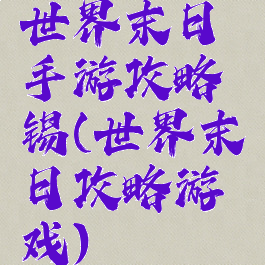 世界末日
手游攻略
锡(世界末
日攻略游
戏)